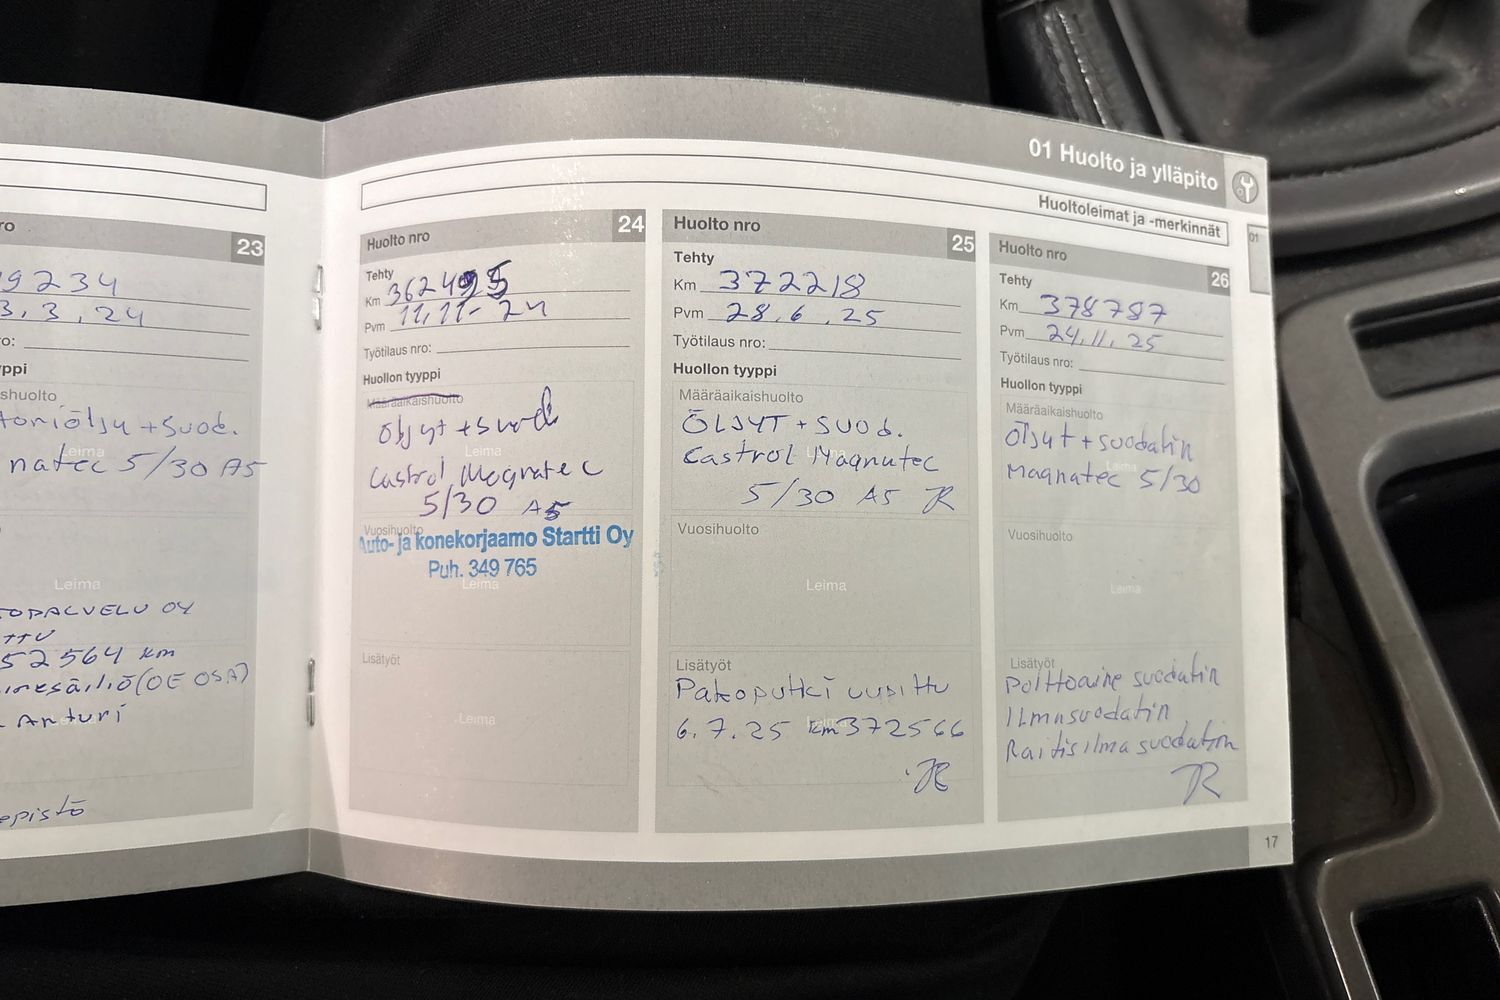 01 Huolto ja ylläpito
Huoltoleimat ja -merkinnät
01
ro
23
9234
3.3.24
ro:
yppi
shuolto
toriöljy + suod.
Leima
natec 5/30 A5
Leima
TOPALVELU OY
TTU
52564 km
inesäiliö (OE OSA)
Anturi
Leima
epistö
Huolto nro
24
Tehty
Km 362495
Pvm 11.11.- 24
Työtilaus nro:
Huollon tyyppi
Määräaikaishuolto
Öljyt + suod
Leima
Castrol Magnatec
5/30 A5
Vuosihuolto
Auto- ja konekorjaamo Startti Oy
Puh. 349 765
Leima
Lisätyöt
Leima
Huolto nro
25
Tehty
Km 372218
Pvm 28.6.25
Työtilaus nro:
Huollon tyyppi
Määräaikaishuolto
ÖLJYT + SUOD.
Leima
Castrol Magnatec
5/30 A5 JR
Vuosihuolto
Leima
Lisätyöt
Pakoputki uusittu
Leima
6.7.25 km 372566
JR
Huolto nro
26
Tehty
Km 378787
Pvm 24.11.25
Työtilaus nro:
Huollon tyyppi
Määräaikaishuolto
Öljyt + suodatin
Leima
Magnatec 5/30
Vuosihuolto
Leima
Lisätyöt
Polttoaine suodatin
Ilmasuodatin
Raitisilma suodatin
JR
17